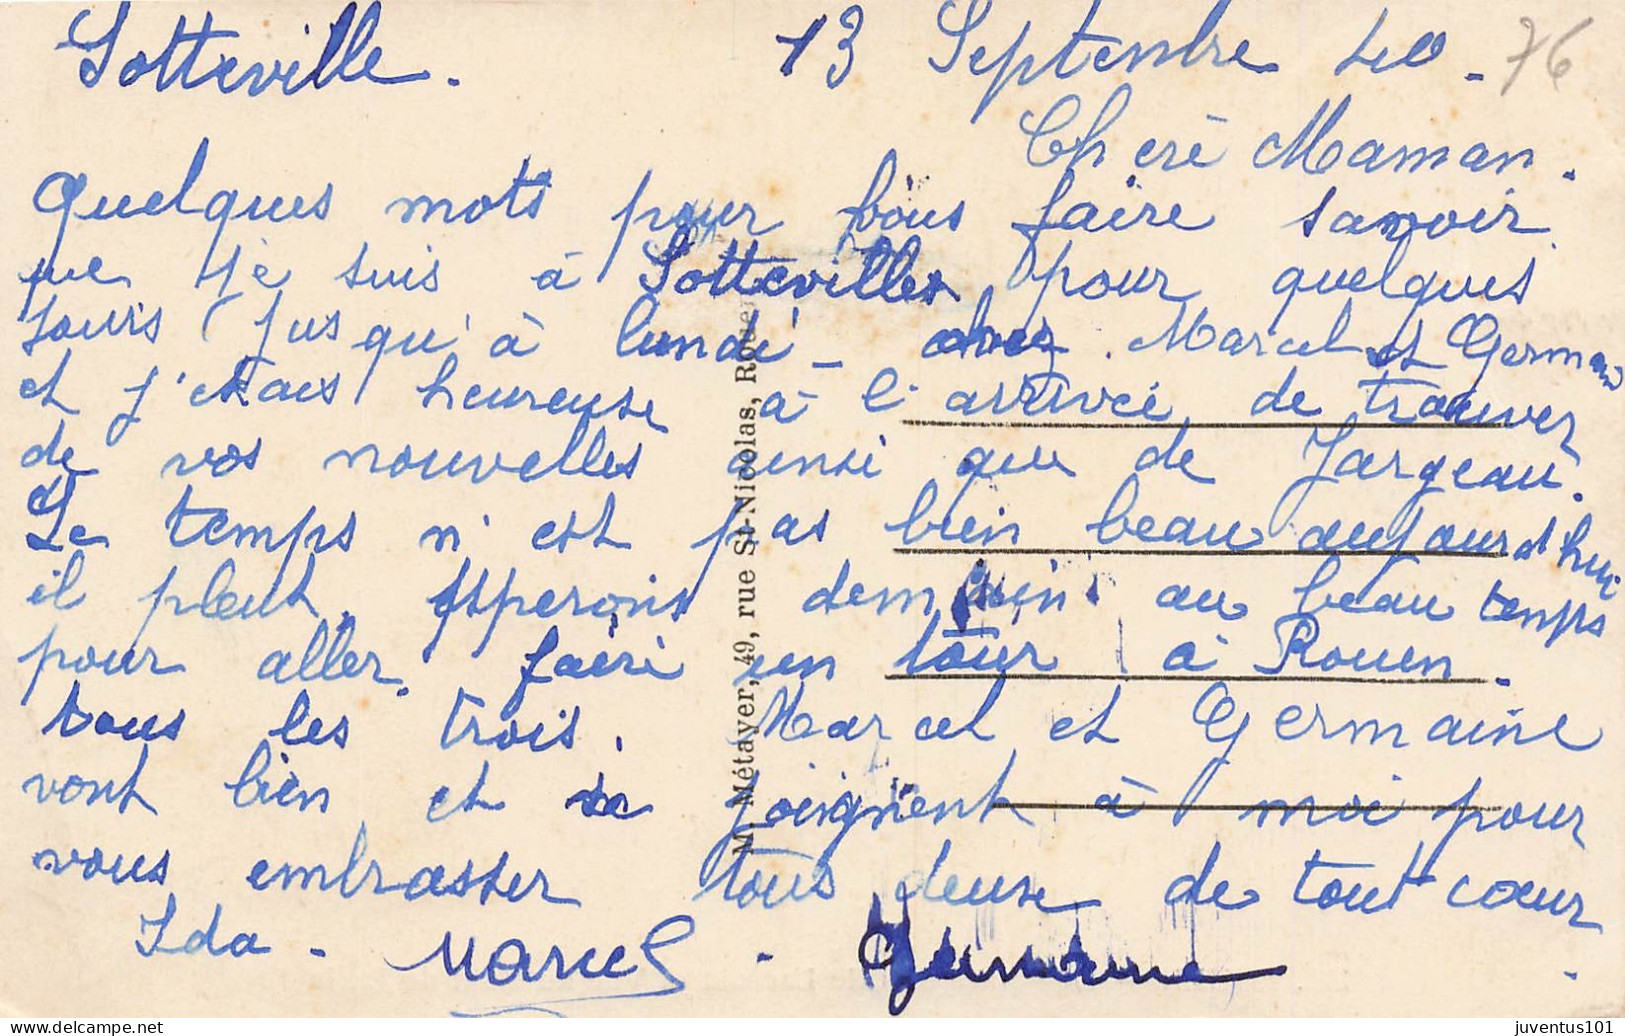 Sotteville. 13 Septembre 40. 76
Cheré Maman.
Quelques mots pour vous faire savoir
que je suis à Sotteville pour quelques
jours (jusqu'à lundi - chez Marcel et Germaine
et j'etais heureuse à l'arrivée de trouver
de vos nouvelles ainsi que de Jargeau.
Le temps n'est pas bien beau aujourd'hui
il pleut. Esperons demain au beau temps
pour aller faire un tour à Rouen.
tous les trois. Marcel et Germaine
vont bien et se joignent à moi pour
vous embrasser tous deuse de tout cœur
Ida - Marcel. Germaine.
M. Métayer, 49, rue St-Nicolas, Rouen
juventus101